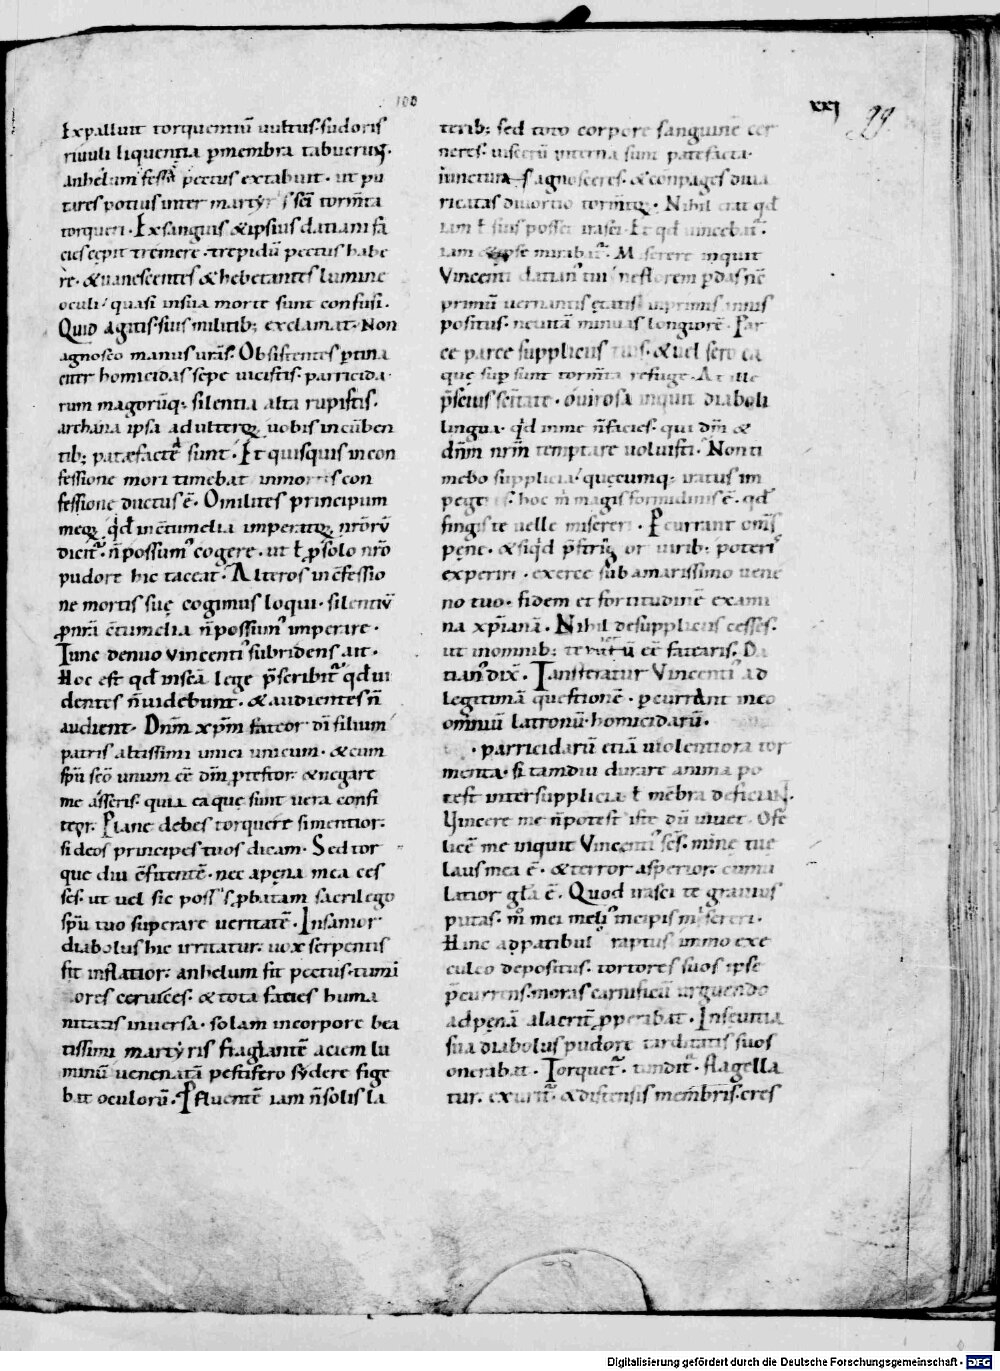 100
xxj
99
Expalluit torquentiũ uultus. sudoris
riuuli liquentia ꝑ membra tabuerunt.
anhelum fessũ pectus extabuit. ut pu
tares potius inter martyris sc̃a torm̃ta
torqueri. Exsanguis & ipsius datiani fa
cies cepit tremere. trepidũ pectus habe
re. & uanescentes & hebetantes lumine
oculi quasi in sua morte sunt confusi.
Quid agitis. suis militib; exclamat. Non
agnosco manus ur̃as. Obsistentes ꝑtina
citer homicidas sepe uicistis. parricida
rum magorũq; silentia alta rupistis.
archana ipsa adulterorꝝ uobis incũben
tib; patefacta sunt. Et quisquis in con
fessione mori timebat in mortis con
fessione ductus ẽ. O milites principum
meorꝝ q̃d in c̃tumelia imperatorꝝ nr̃orũ
dicit̃. ñ possum᷒ cogere. ut ł p̃ solo nr̃o
pudore hic taceat. Alteros in c̃fessio
ne mortis sue cogimus loqui. silentiũ
ꝓ nr̃a c̃tumelia ñ possum᷒ imperare.
Tunc denuo Vincenti᷒ subridens ait.
Hoc est qđ in sc̃a lege p̃scribit̃ qđ ui
dentes ñ uidebunt. & audientes ñ
audient. Dnm̃ xp̃m fateor di filium
patris altissimi unici unicum. & cum
sp̃u sc̃o unum eẽ dm̃ ꝓtestor. & negare
me asseris. quia ea que sunt uera confi
teor. Plane debes torquere si mentior.
si deos principes tuos dicam. Sed tor
que diu c̃fitentẽ. nec a pena mea ces
ses. ut uel sic possis ꝓbatam sacrilego
sp̃u tuo superare ueritatẽ. Insanior
diabolus hic irritatur. uox serpentis
fit inflatior. anhelum fit pectus. tumi
ores ceruices. & tota facies huma
nitatis inuersa. solam in corpore bea
tissimi martyris fraglantẽ aciem lu
minũ uenenatã pestifero sydere fige
bat oculorũ. Pfluentẽ iam ñ solis la
terib; sed toto corpore sanguinẽ cer
neres. uiscerũ interna sunt patefacta.
iunctura s agnosceres. & conpages diua
ricatas diuortio torm̃torꝝ. Nihil erat qđ
iam ł suis posset irasci. Et qđ uincebat̃.
iam & ipse mirabat̃. Miserere inquit
Vincenti datian᷒ tui ne florem ꝑdas nẽ
primũ uernantis etatis inprimis annis
positus. ne uitã minuas longiorẽ. Par
ce parce suppliciis tuis. & uel sero ea
que sup sunt torm̃ta refuge. At ille
p̃scius sentate. O uirosa inquit diaboli
lingua. qđ in me ñ facies. qui dm̃ &
dnm̃ nrm̃ temptare uoluisti. Non ti
mebo supplicia. quecumq; iratus im
pege s. hoc m̃ magis formidinis ẽ. qđ
fingis te uelle misereri. Pcurrant om̃s
pene. & siqđ p̃strigior uirib; poteris
experiri. exerce sub amarissimo uene
no tuo. fidem et fortitudinẽ exami
na xp̃ianã. Nihil de suppliciis cesses.
ut in omnib; te uictũ eẽ fatearis. Da
tian᷒ dix̃. Transferatur Vincenti᷒ ad
legitimã questionẽ. ꝑcurrant in eo
omniũ latronũ. homicidarũ.
. parricidarũ etiã uiolentiora tor
menta. si tamdiu durare anima po
test inter supplicia ł mẽbra deficiant.
Vincere me ñ potest iste dũ uiuet. Ose
licẽ me inquit Vincenti᷒ sc̃s. mine tue
laus mea ẽ. & terror asperior. cumu
latior gł̃a ẽ. Quod irasci te grauius
putas. m̃ mei meli᷒ incipis misereri.
Hinc ad patibulũ raptus. immo exe
culeo depositus. tortores suos ipse
p̃currens. moras carnificũ arguendo
ad penã alacrit̃ ꝓperabat. Insentia
sua diabolus pudore tarditatis suos
onerabat. Torquet̃. tundit̃. flagella
tur. exurit̃. & distensis membris. cres
Digitalisierung gefördert durch die Deutsche Forschungsgemeinschaft - DFG